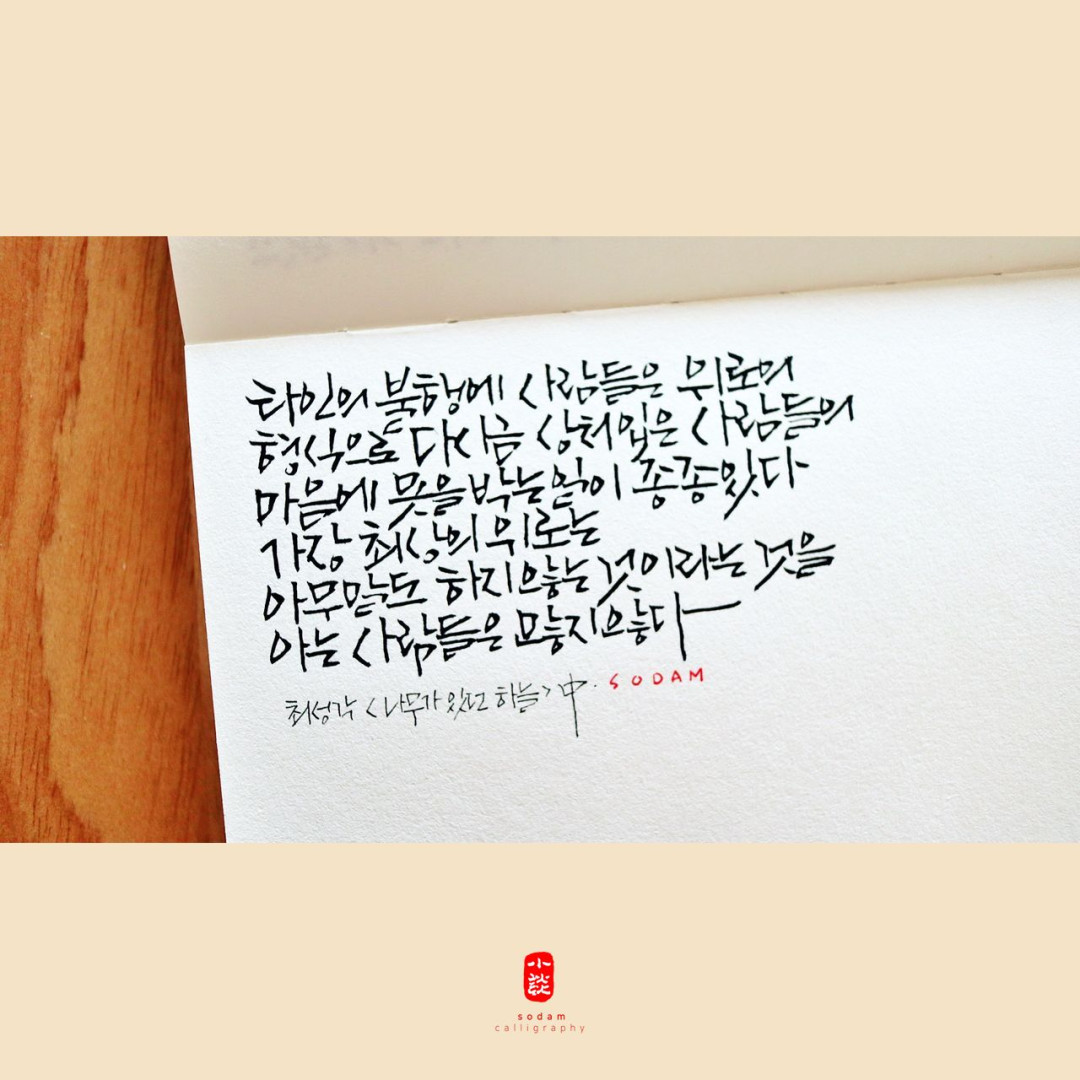 타인의 불행에 사람들은 위로의
형식으로 다시금 상처입은 사람들의
마음에 못을박는일이 종종있다
가장 최상의 위로는
아무말도 하지않는것이라는 것을
아는 사람들은 많지않다
최성각 <나무가 있고 하늘> 中. SODAM
小談
sodam
calligraphy